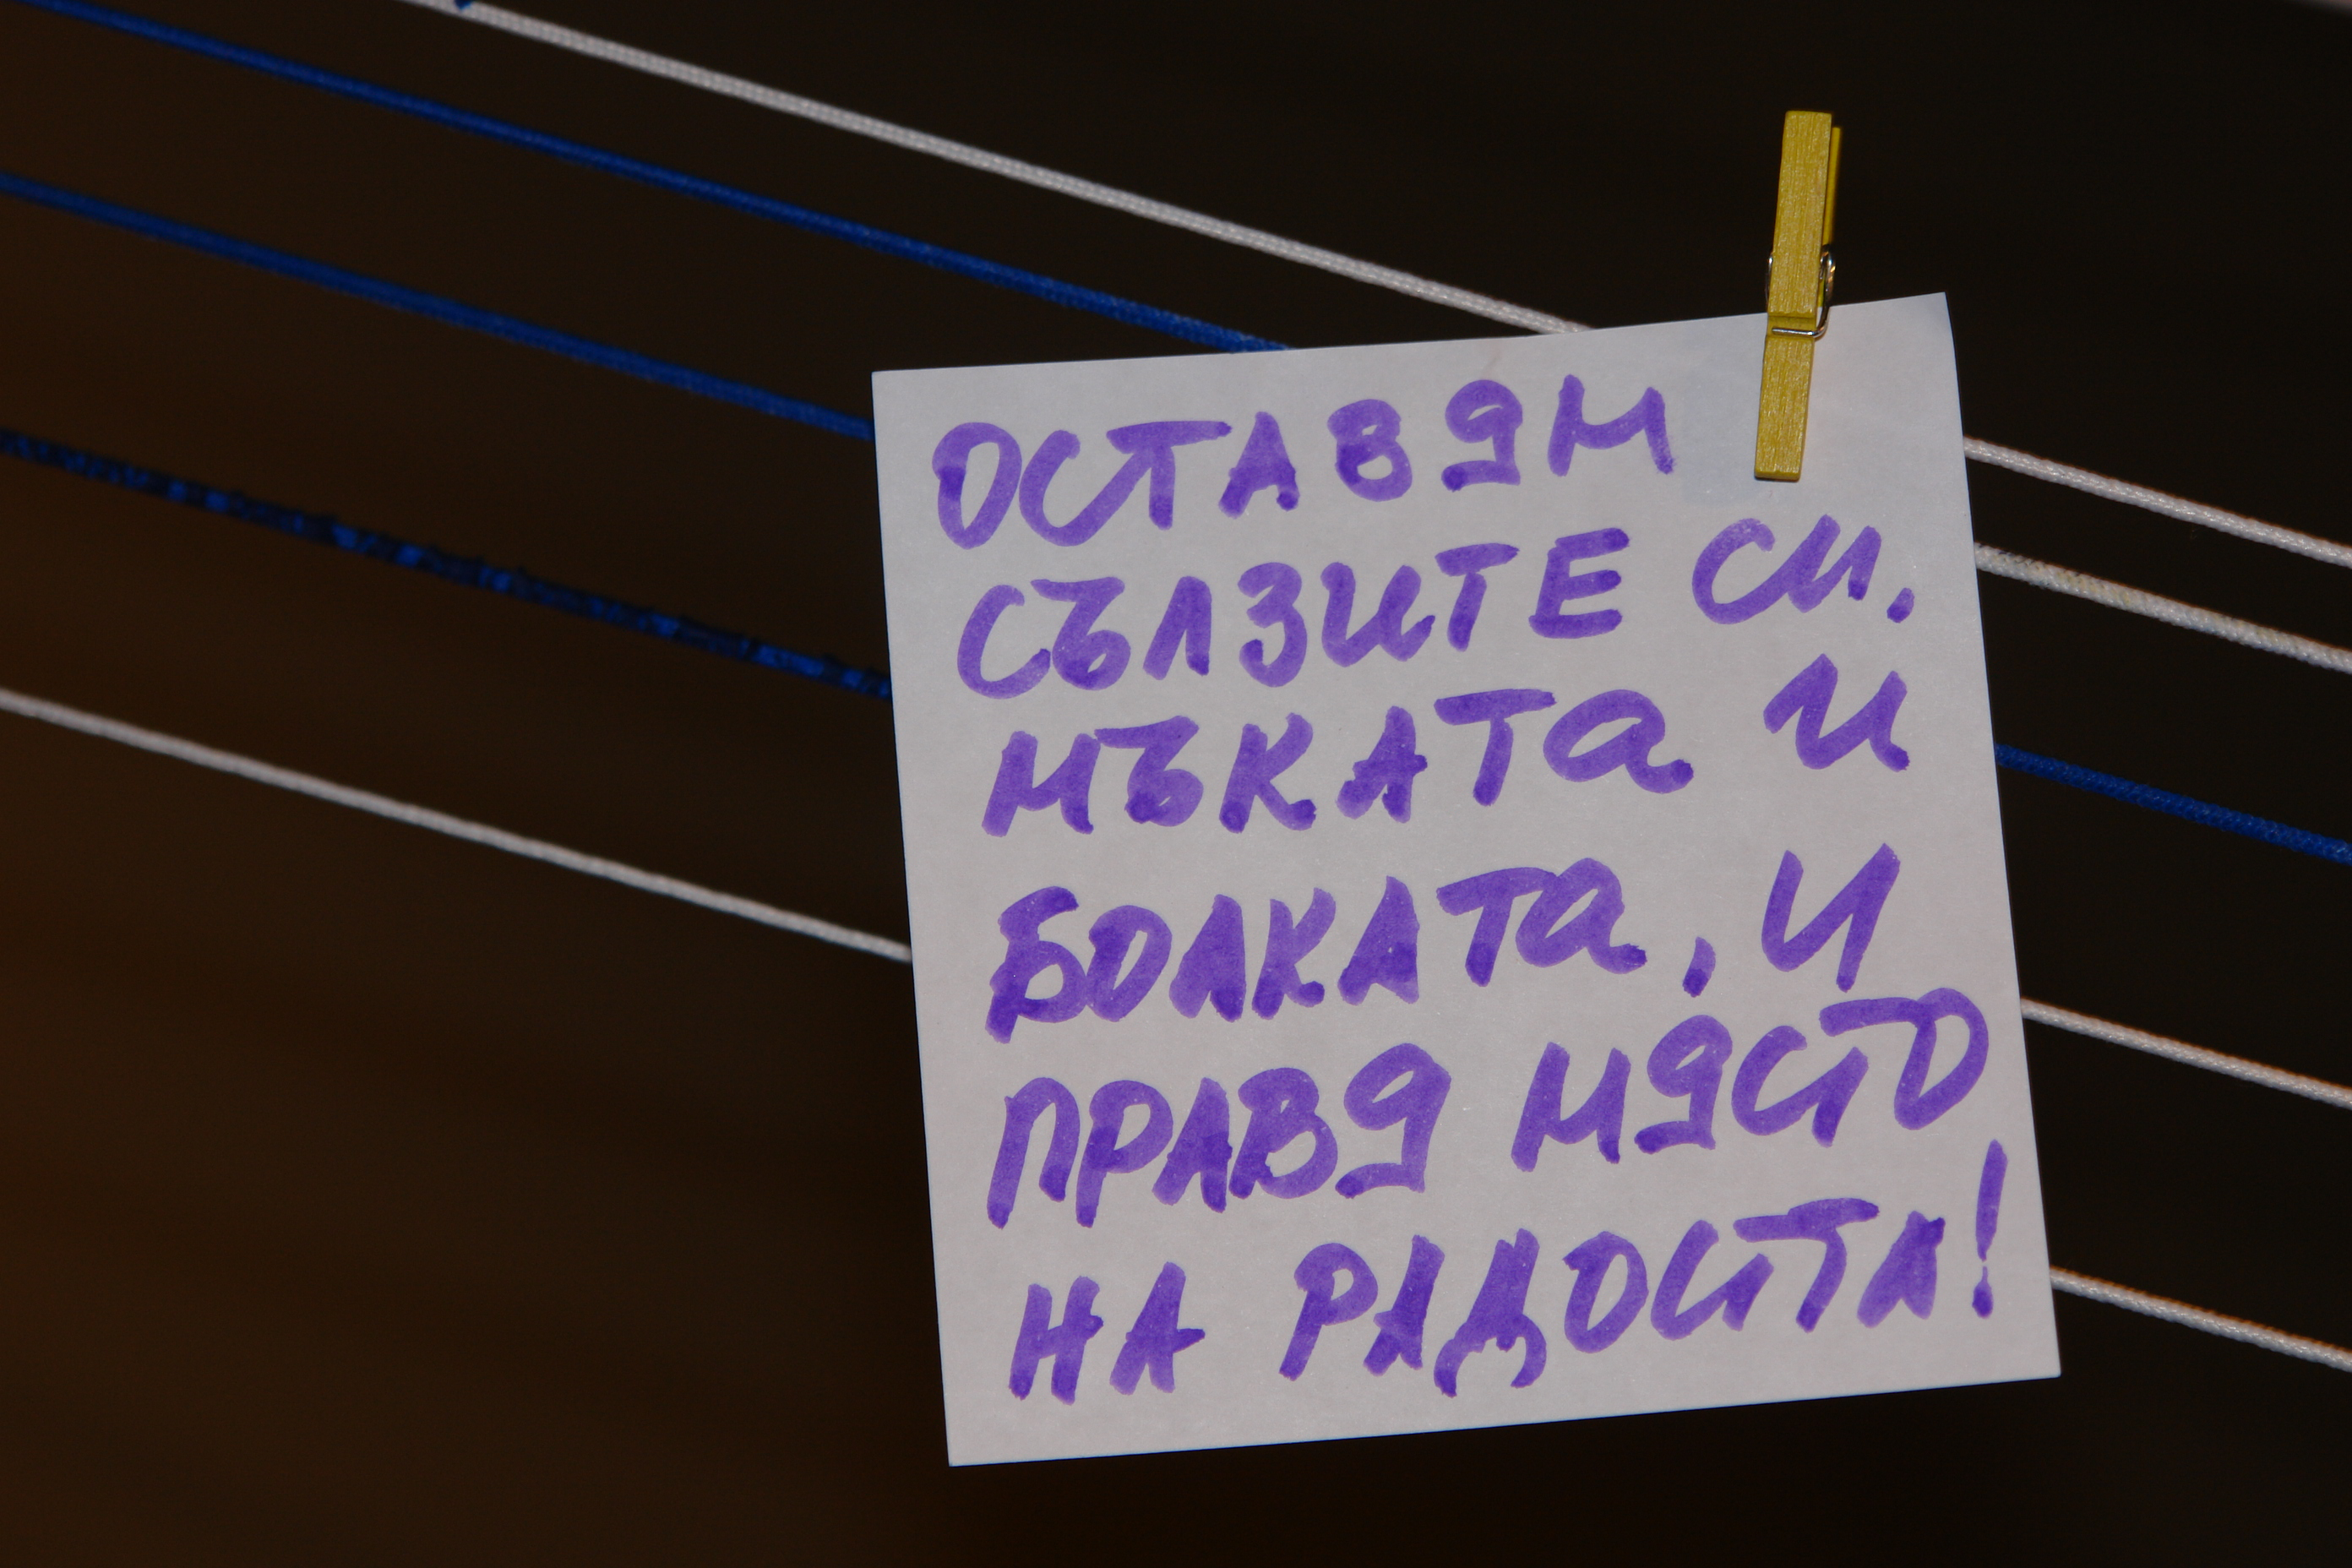 ОСТАВЯМ
СЪЛЗИТЕ СИ,
МЪКАТА И
БОЛКАТА, И
ПРАВЯ МЯСТО
НА РАДОСТТА!